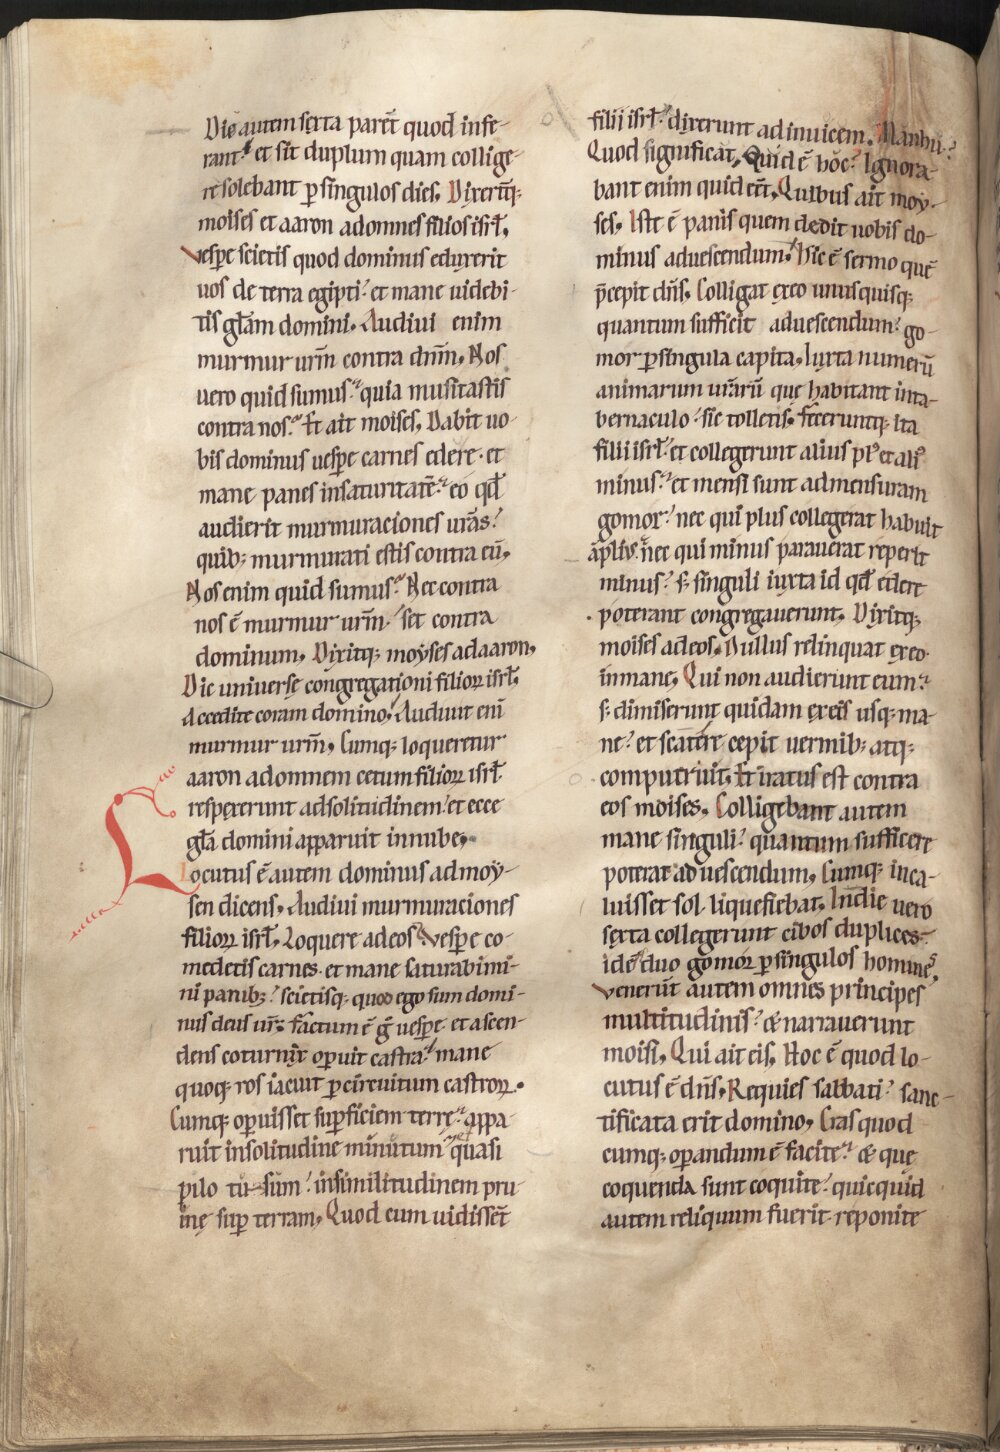 Die autem sexta parēt quod infe-
rant? et sit duplum quam collige-
re solebant ꝑ singulos dies. Dixerūtq;
moises et aaron ad omnes filios isrł,
vesꝑe scietis quod dominus eduxerit
uos de terra egipti? et mane uidebi-
tis głam domini. Audiui enim
murmur urm̄ contra dn̄m, Nos
uero quid sumus? quia musitastis
contra nos? Et ait moises, Dabit uo-
bis dominus uesꝑe carnes edere. et
mane panes in saturitatē? eo qđ
audierit murmuraciones urās?
quib; murmurati estis contra eū,
Nos enim quid sumus? Nec contra
nos ē murmur urm̄? set contra
dominum, Dixitq; moyses ad aaron,
Die uniuersę congregationi filioꝝ isrł,
Accedite coram domino, Audiuit enī
murmur urm̄, Cumq; loqueretur
aaron ad omnem cetum filioꝝ isrł.
respexerunt ad solitudinem? et ecce
głā domini apparuit in nube,
Locutus ē autem dominus ad moy-
sen dicens, Audiui murmuraciones
filioꝝ isrł, Loquere ad eos Vesꝑe co-
medetis carnes. et mane saturabimi-
ni panib;? scietisq; quod ego sum domi-
nus deus ur̄. factum ē ḡ uesꝑe. et ascen-
dens coturnix oꝑuit castra? mane
quoq; ros iacuit ꝑ circuitum castroꝝ.
Cumq; oꝑuisset suꝑficiem terrę? appa-
ruit in solitudine minutum quasi
pilo tusum? in similitudinem pru-
inę suꝑ terram, Quod cum uidissēt
filii isrł? dixerunt ad inuicem. Manhu?
Quod significat, Quid ē hoc? Ignora-
bant enim quid eēt, Quibus ait moy-
ses, Iste ē panis quem dedit uobis do-
minus ad uescendum, Hic ē sermo quē
p̄cepit dn̄s, Colligat ex eo unusquisq;
quantum sufficit ad uescendum? go-
mor ꝑ singula capita, Iuxta numerū
animarum urārū que habitant in ta-
bernaculo? sic tolletis, feceruntq; ita
filii isrł. et collegerunt alius pl' et ali'
minus? et mensi sunt ad mensuram
gomor? nec qui plus collegerat habuit
āplius. nec qui minus parauerat reperit
minus? s; singuli iuxta id qđ edere
poterant congregauerunt, Dixitq;
moises ad eos, Nullus relinquat ex eo
in mane, Qui non audierunt eum?
s; dimiserunt quidam ex eis usq; ma-
ne? et scatere cepit uermib; atq;
computruit, Et iratus est contra
eos moises, Colligebant autem
mane singuli? quantum sufficere
poterat ad uescendum, Cumq; inca-
luisset sol. liquefiebat, In die uero
sexta collegerunt cibos duplices.
id ē duo gomor ꝑ singulos homines,
Venerūt autem omnes principes
multitudinis? & narrauerunt
moisi, Qui ait eis, Hoc ē quod lo-
cutus ē dn̄s, Requies sabbati? sanc-
tificata erit domino, Cras quod
cumq; oꝑandum ē facite? & que
coquenda sunt coquite? quicquid
autem reliquum fuerit. reponite